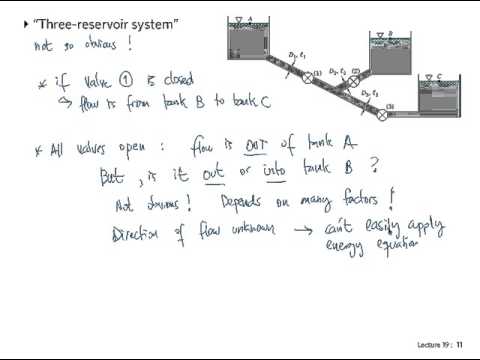 ▸ "Three-reservoir system"
not so obvious !
* if valve ① is closed
↳ flow is from tank B to tank C
* All valves open : flow is OUT of tank A
But, is it out or into tank B ?
Not obvious ! Depends on many factors !
Direction of flow unknown → can't easily apply
energy equation
A
B
C
D₁, ℓ₁
(1)
D₂, ℓ₂
(2)
D₃, ℓ₃
(3)
Lecture 19 : 11